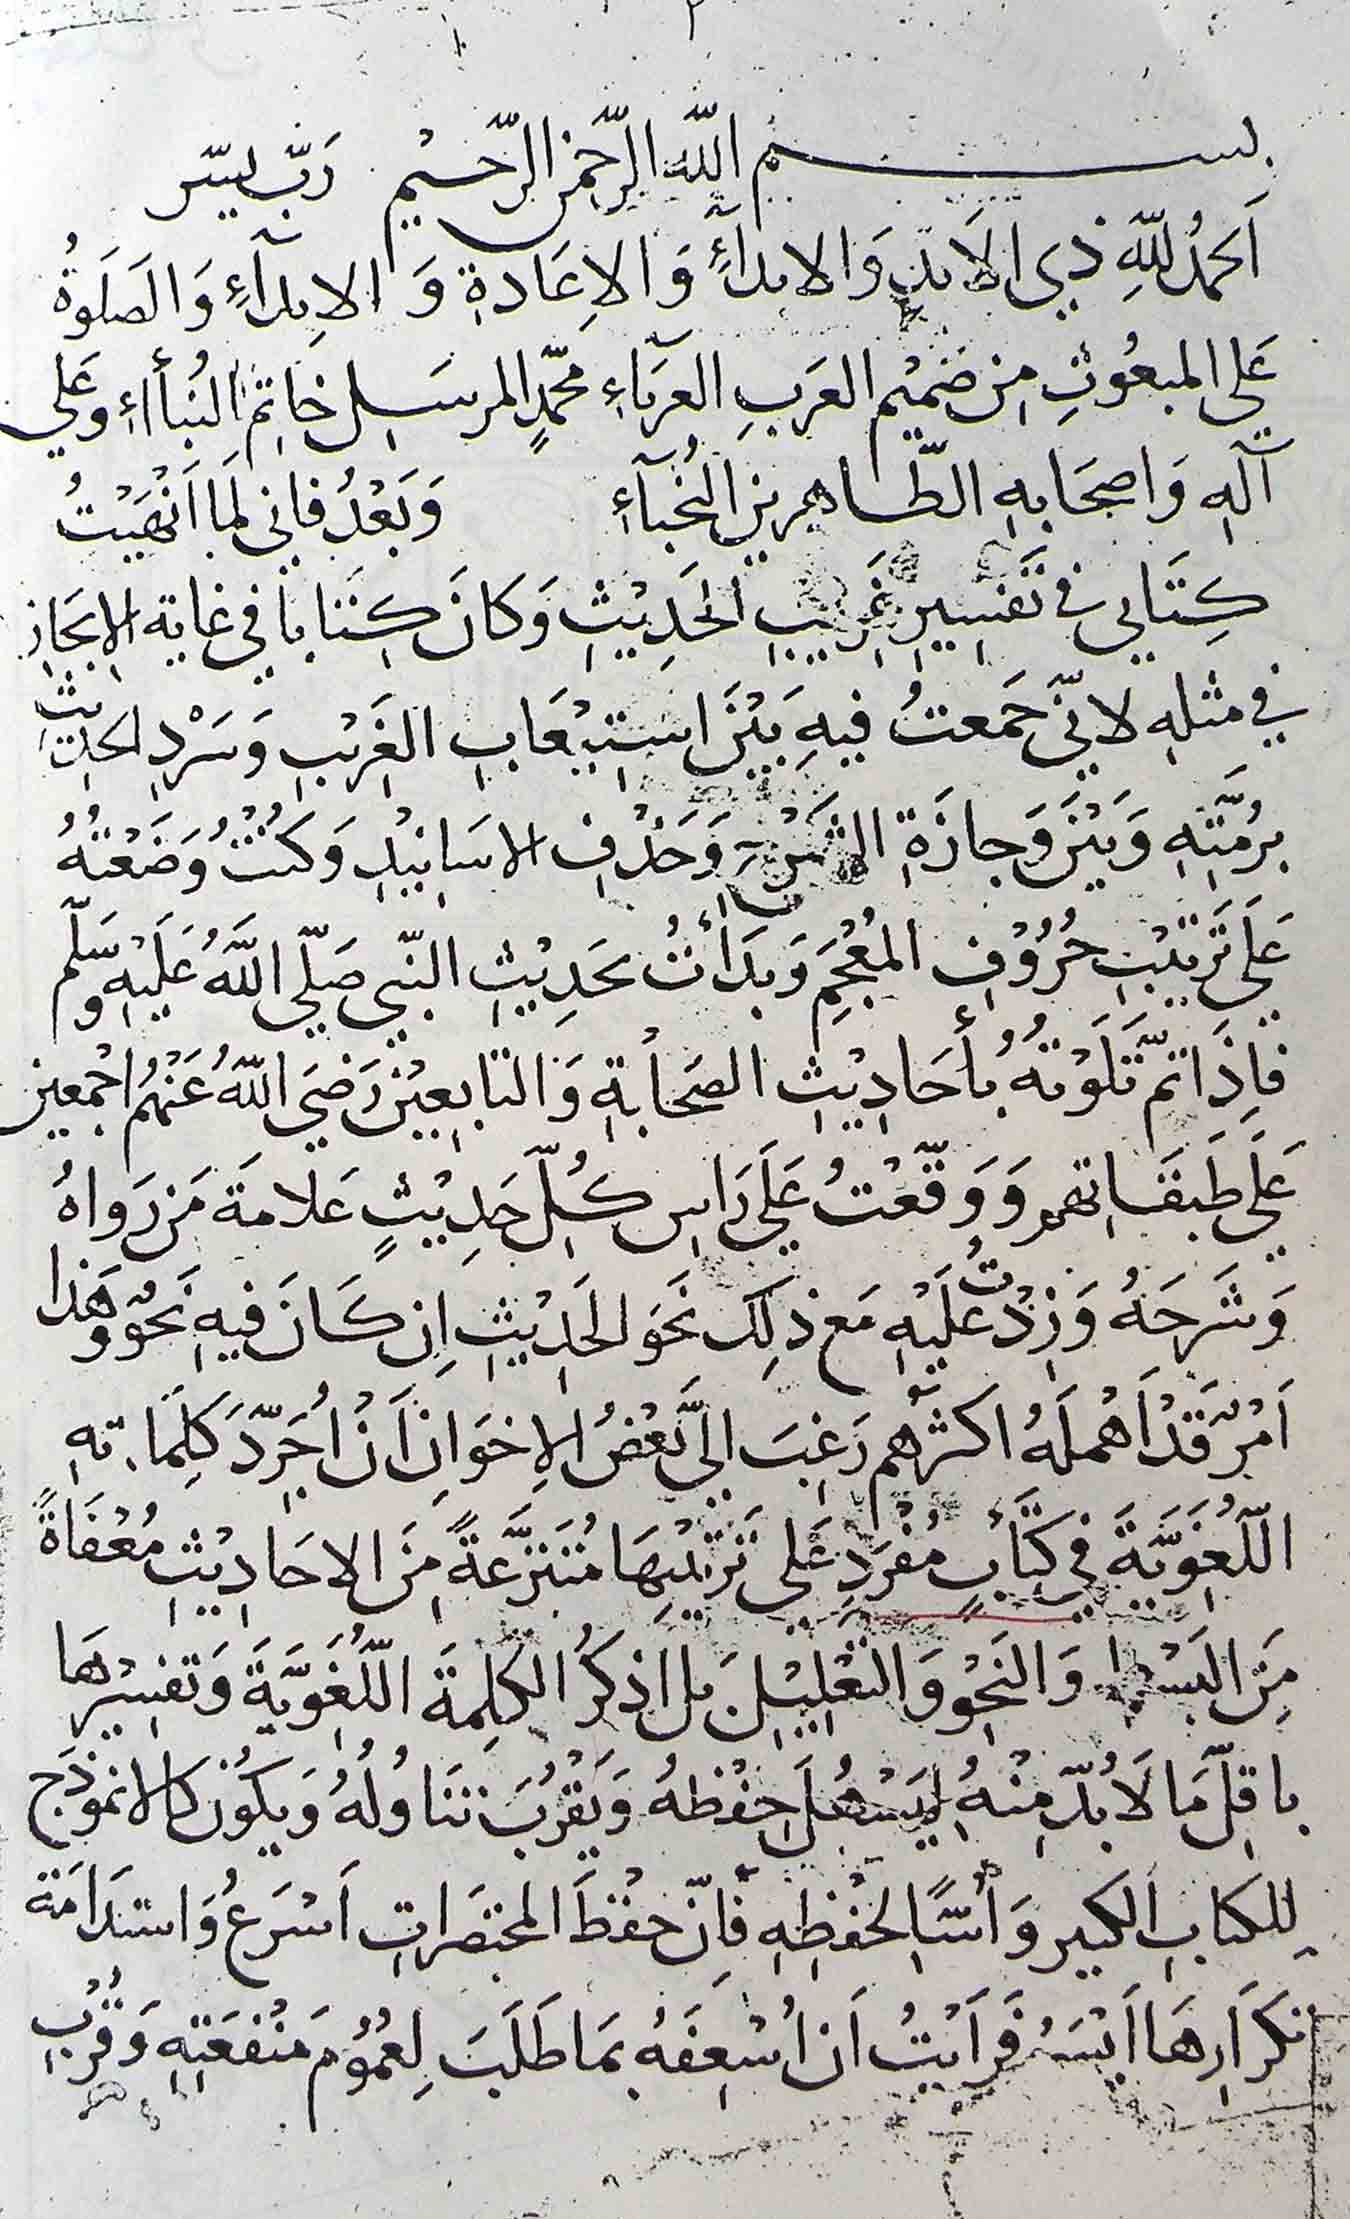 بسم الله الرحمن الرحيم رَبّ يسّر
اَلحمدُ للهِ ذي الاَبدِ وَالابدآءِ وَالاِعَادةِ وَ الاِبدآءِ وَالصَلَوةُ
عَلى المبعُوثِ مِن صَميْم العَربِ العَربآءِ محمّدٍ المرسَل خاتِم النُبأاءِ وعَلي
آلهِ وَاصحَابهِ الطّاهرين النُجبآءِ وَبَعْدُ فاني لمَا اَنْهَيْتُ
كِتَابي في تَفسِيرِ غَريبِ الحَدِيْثِ وَكانَ كِتَابا في غاية الايجَاز
في مثلهِ لانّي جَمَعتُ فيهِ بَيْنَ اسْتِيْعَابِ الغَرِيْبِ وَسَرْدِ الحديثِ
برُمّتهِ وَبَيْنَ وَجازَةِ الشَرْحِ وَحَذْفِ الاسَانِيْدِ وَكنْتُ وَضَعْتهُ
عَلَى تَرتِيْبِ حُرُوْفِ المُعْجَمِ وَبدَأتُ بحَدِيْثِ النّبي صَلّي اللّهُ عَلَيْهِ وسَلّم
فاِذَا تمّ تَلَوْتهُ بأحَادِيْثِ الصَحَابةِ وَالتابعِيْنَ رَضيَ اللّهُ عَنْهُم اجْمعين
عَلَى طَبقَاتهم وَوَقّعْتُ عَلَى رَاسِ كُلّ حَدِيْثٍ عَلامَةَ مَن رَواهُ
وَشَرحَهُ وَزِدْتُ عَلَيْهِ مَع ذلِكَ نَحوَ الحَدِيْثِ اِن كَانَ فيهِ نَحوٌ وهَذا
اَمْرٌ قَدْ اَهْملَهُ اكثرُهُم رَغِبَ اِلَىَّ بَعْضُ الاِخوَانِ اَنْ اُجَرّدَ كَلِمَاتهِ
اللّغَويَّةَ في كِتَابٍ مُفْرَدٍ عَلى تَرْتِيْبِهَا مُنتَزَعَةً مِنَ الاحَادِيْثِ مُعْفَاةً
مِنَ البَسْط وَالنَحْوِ وَالتعْلِيْلِ بَل اذكرُ الكلِمَةَ اللّغَويَّةَ وَتفسِيْرهَا
باقلّ مَا لَابُدّ مِنْهُ لِيَسْهُلَ حِفْظهُ وَيَقْرُبَ تنَاوُلُهُ وَيكُون كالانموُذَج
لِلكتابِ الكبيرِ وَاُسًّا لحفْظهِ فَانّ حفْظَ المختصَراتِ اَسْرَعُ وَاستدَامَة
تكرَارِهَا اَيْسَرُ فَرَاَيْتُ اَن اُسْعِفَهُ بمَا طَلَبَ لِعُمُوْمِ مَنْفعَتِهِ وَقُرْبِ